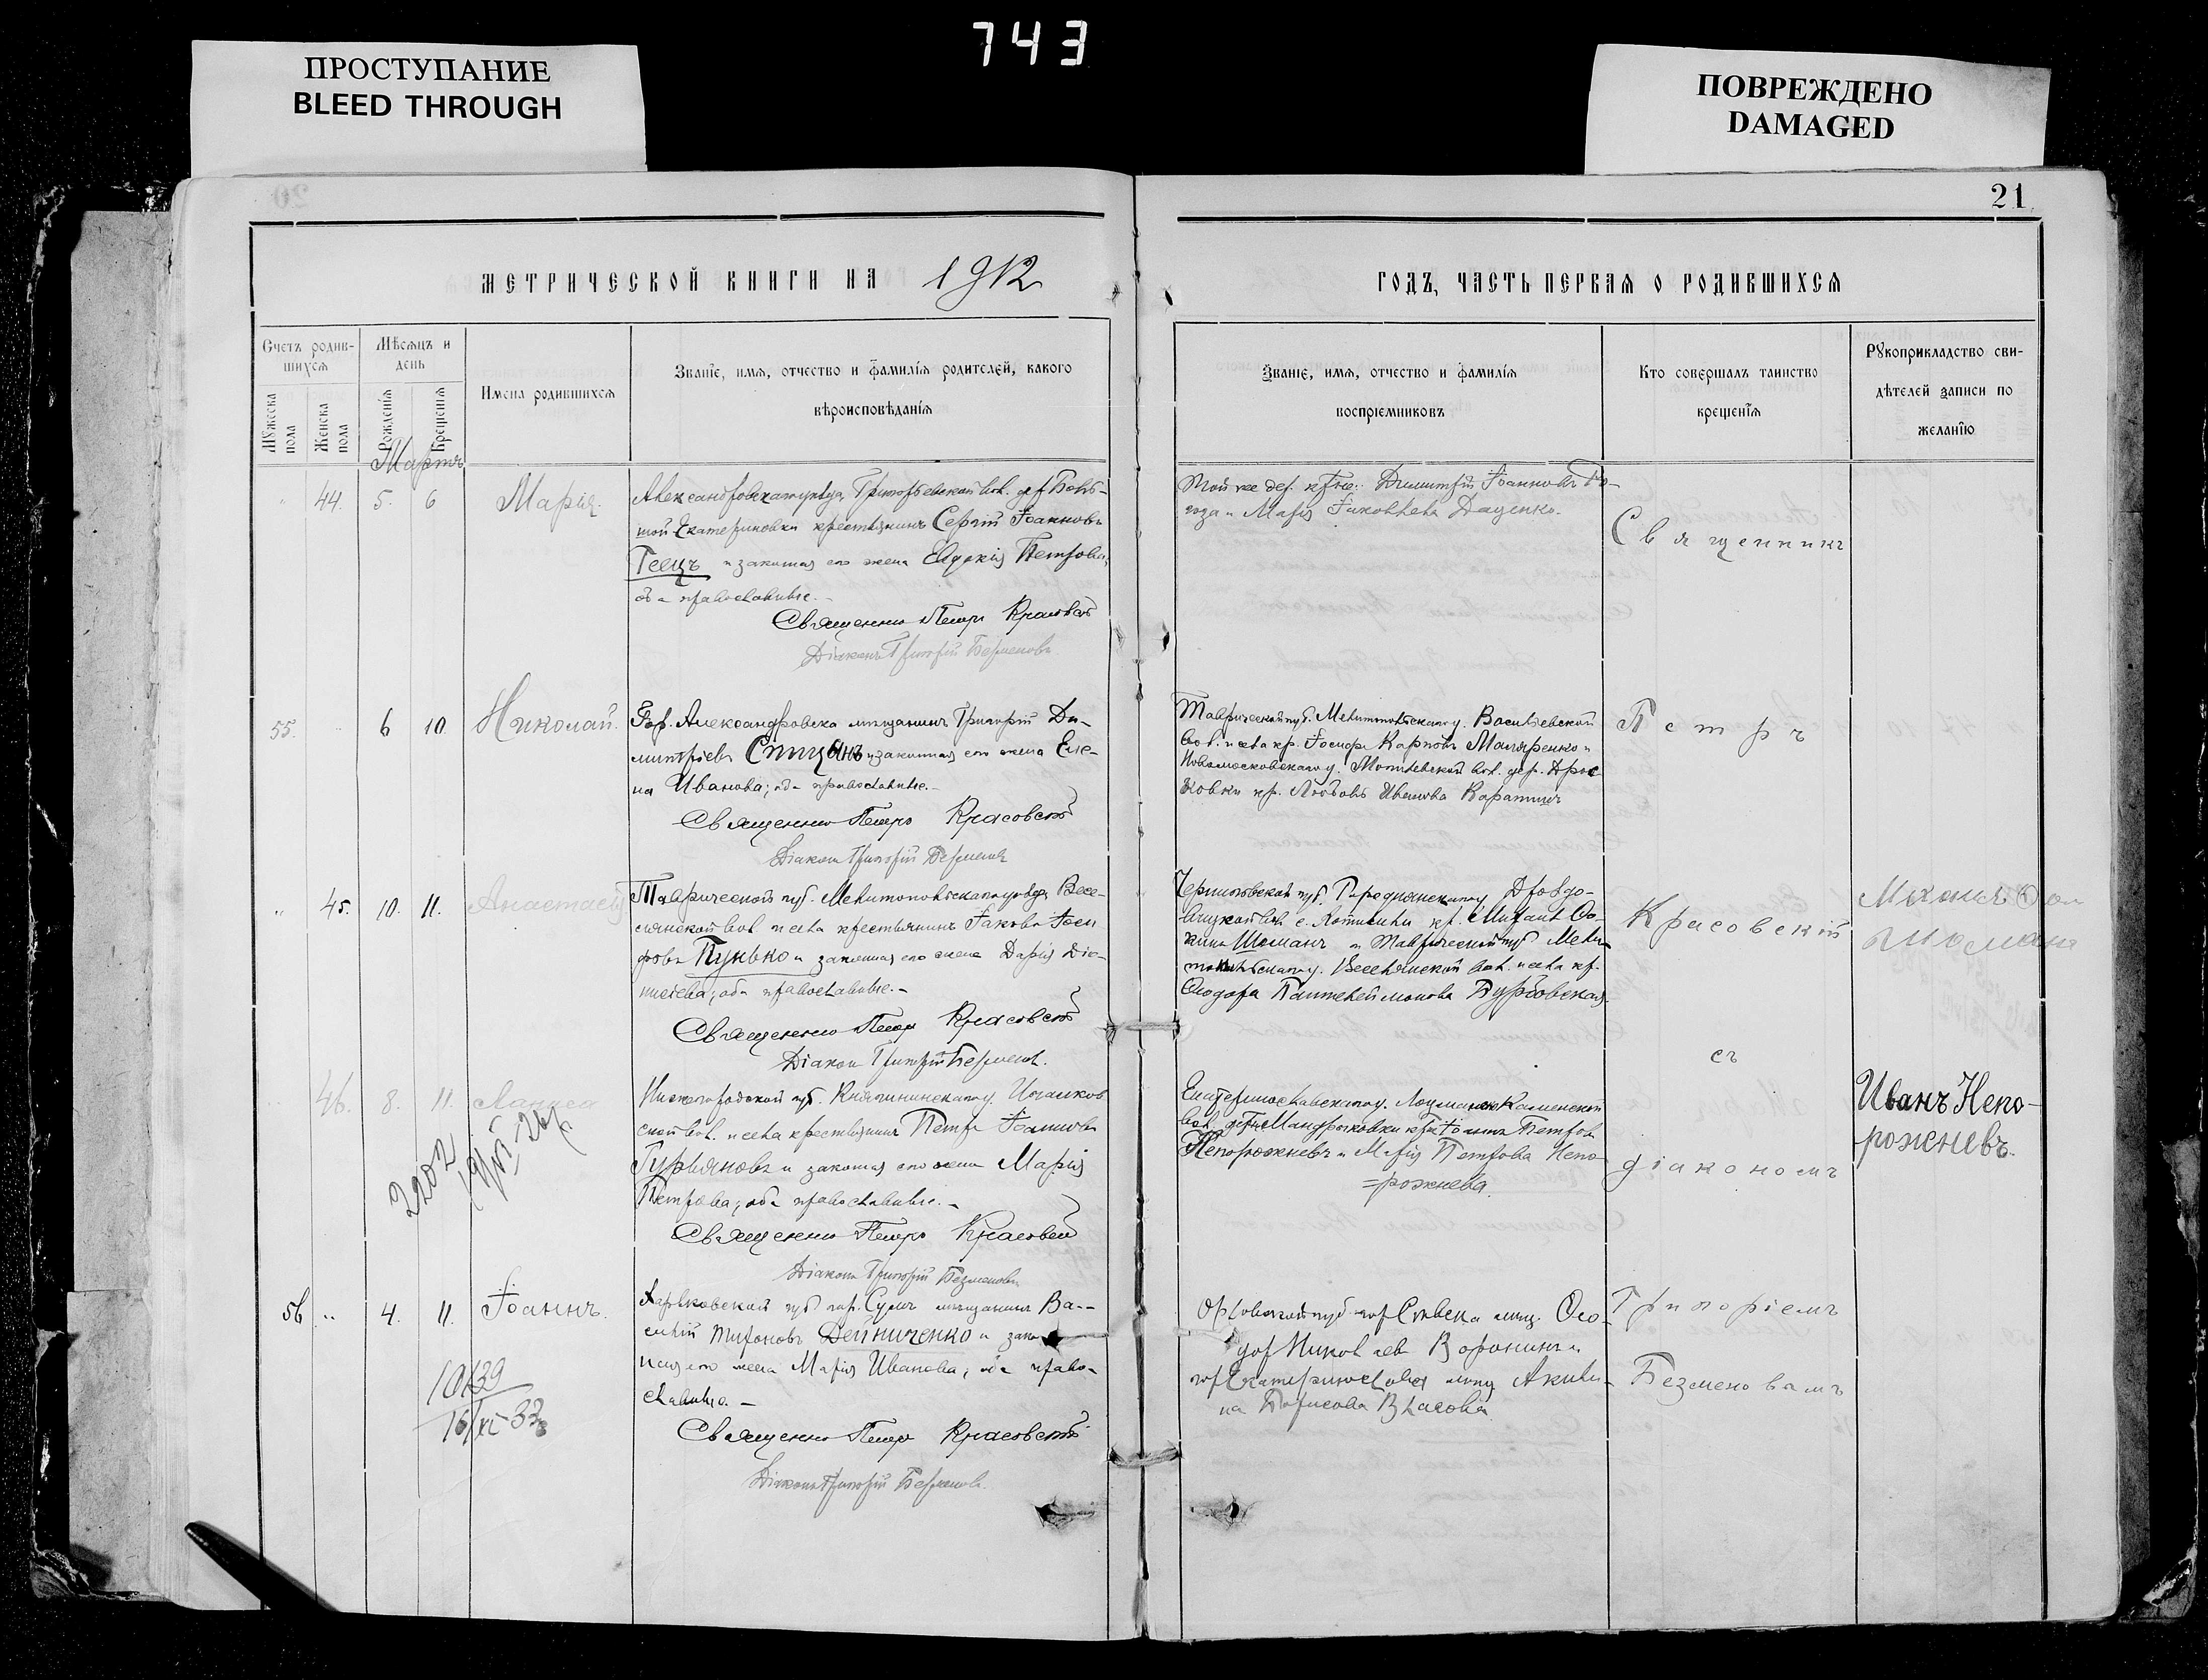 743
ПРОСТУПАНИЕ
BLEED THROUGH
ПОВРЕЖДЕНО
DAMAGED
21
МЕТРИЧЕСКОЙ КНИГИ НА 1912
ГОДЪ, ЧАСТЬ ПЕРВАЯ О РОДИВШИХСЯ
Счетъ родив-
шихся
Мужеска пола
Женска пола
Мѣсяцъ и
день
Рожденія
Крещенія
Имена родившихся
Званіе, имя, отчество и фамилія родителей, какого
вѣроисповѣданія
Званіе, имя, отчество и фамилія
воспріемниковъ
Кто совершалъ таинство
крещенія
Рукоприкладство сви-
дѣтелей записи по
желанію
Мартъ
44. 5. 6 Марія.
Александровскаго уѣзда, Григорьевской вол. дер. Боль-
шой Екатериновки крестьянинъ Сергій Іоанновъ
Геецъ и законная его жена Евдокія Петрова,
оба православные.-
Священникъ Петръ Красовскій
Діаконъ Григорій Безменовъ
Той же дер. кр-не: Димитрій Іоанновъ
и Марія Яковлева Даценко.
Священникъ
55. 6 10 Николай.
Гор. Александровска мѣщанинъ Григорій Ди-
митріевъ и законная его жена Еле-
на Иванова; оба православные.-
Священникъ Петръ Красовскій
Діаконъ Григорій Безменовъ
Таврической губ. Мелитопольскаго у. Васильевской
вол. и села кр. Іосифъ Карповъ Маляренко и
Новомосковскаго у. вол. дер.
ковки кр. Любовь Иванова
Петръ
" 45. 10. 11. Анастасія
Таврической губ. Мелитопольскаго уѣзда, Весе-
лянской вол. и села крестьянинъ Іаковъ Іоси
фовъ Пунько и законная его жена Дарія Діо-
нисіева; оба православные.-
Священникъ Петръ Красовскій
Діаконъ Григорій Безменовъ.
Черниговской губ. Городнянскаго у.
вол. с. кр. Михаилъ Ѳо-
кинъ Шоманъ и Таврической губ. Мели-
топольскаго у. Веселянской вол. и села кр.
Ѳеодора Пантелеймонова
Красовскій
46. 8. 11.
2202
Нижегородской губ. Княгининскаго у.
ской вол. и села крестьянинъ Петръ Іоанновъ
Гурьяновъ и законная его жена Марія
Петрова; оба православные.-
Священникъ Петръ Красовскій
Діаконъ Григорій Безменовъ
Екатеринославскаго у. Лоцмано Каменской
вол. дер. Мандрыковки кр-не Іоаннъ Петровъ
Непорожневъ и Марія Петрова Непо-
=рожнева.
съ
діакономъ
Иванъ Непо-
рожневъ.
56 " 4. 11. Іоаннъ.
10139
16/XI-33
Харьковской губ. гор. Сумъ мѣщанинъ Ва-
силій Дейниченко и зако
ная его жена Марія Иванова; оба право-
славные.-
Священникъ Петръ Красовскій
Діаконъ Григорій Безменовъ.
Орловской губ. гор. мѣщ. Ѳео-
доръ Николаевъ Воронинъ и
гор. Екатеринослава мѣщ. Акили-
на Борисова Власова.
Григоріемъ
Безменовымъ